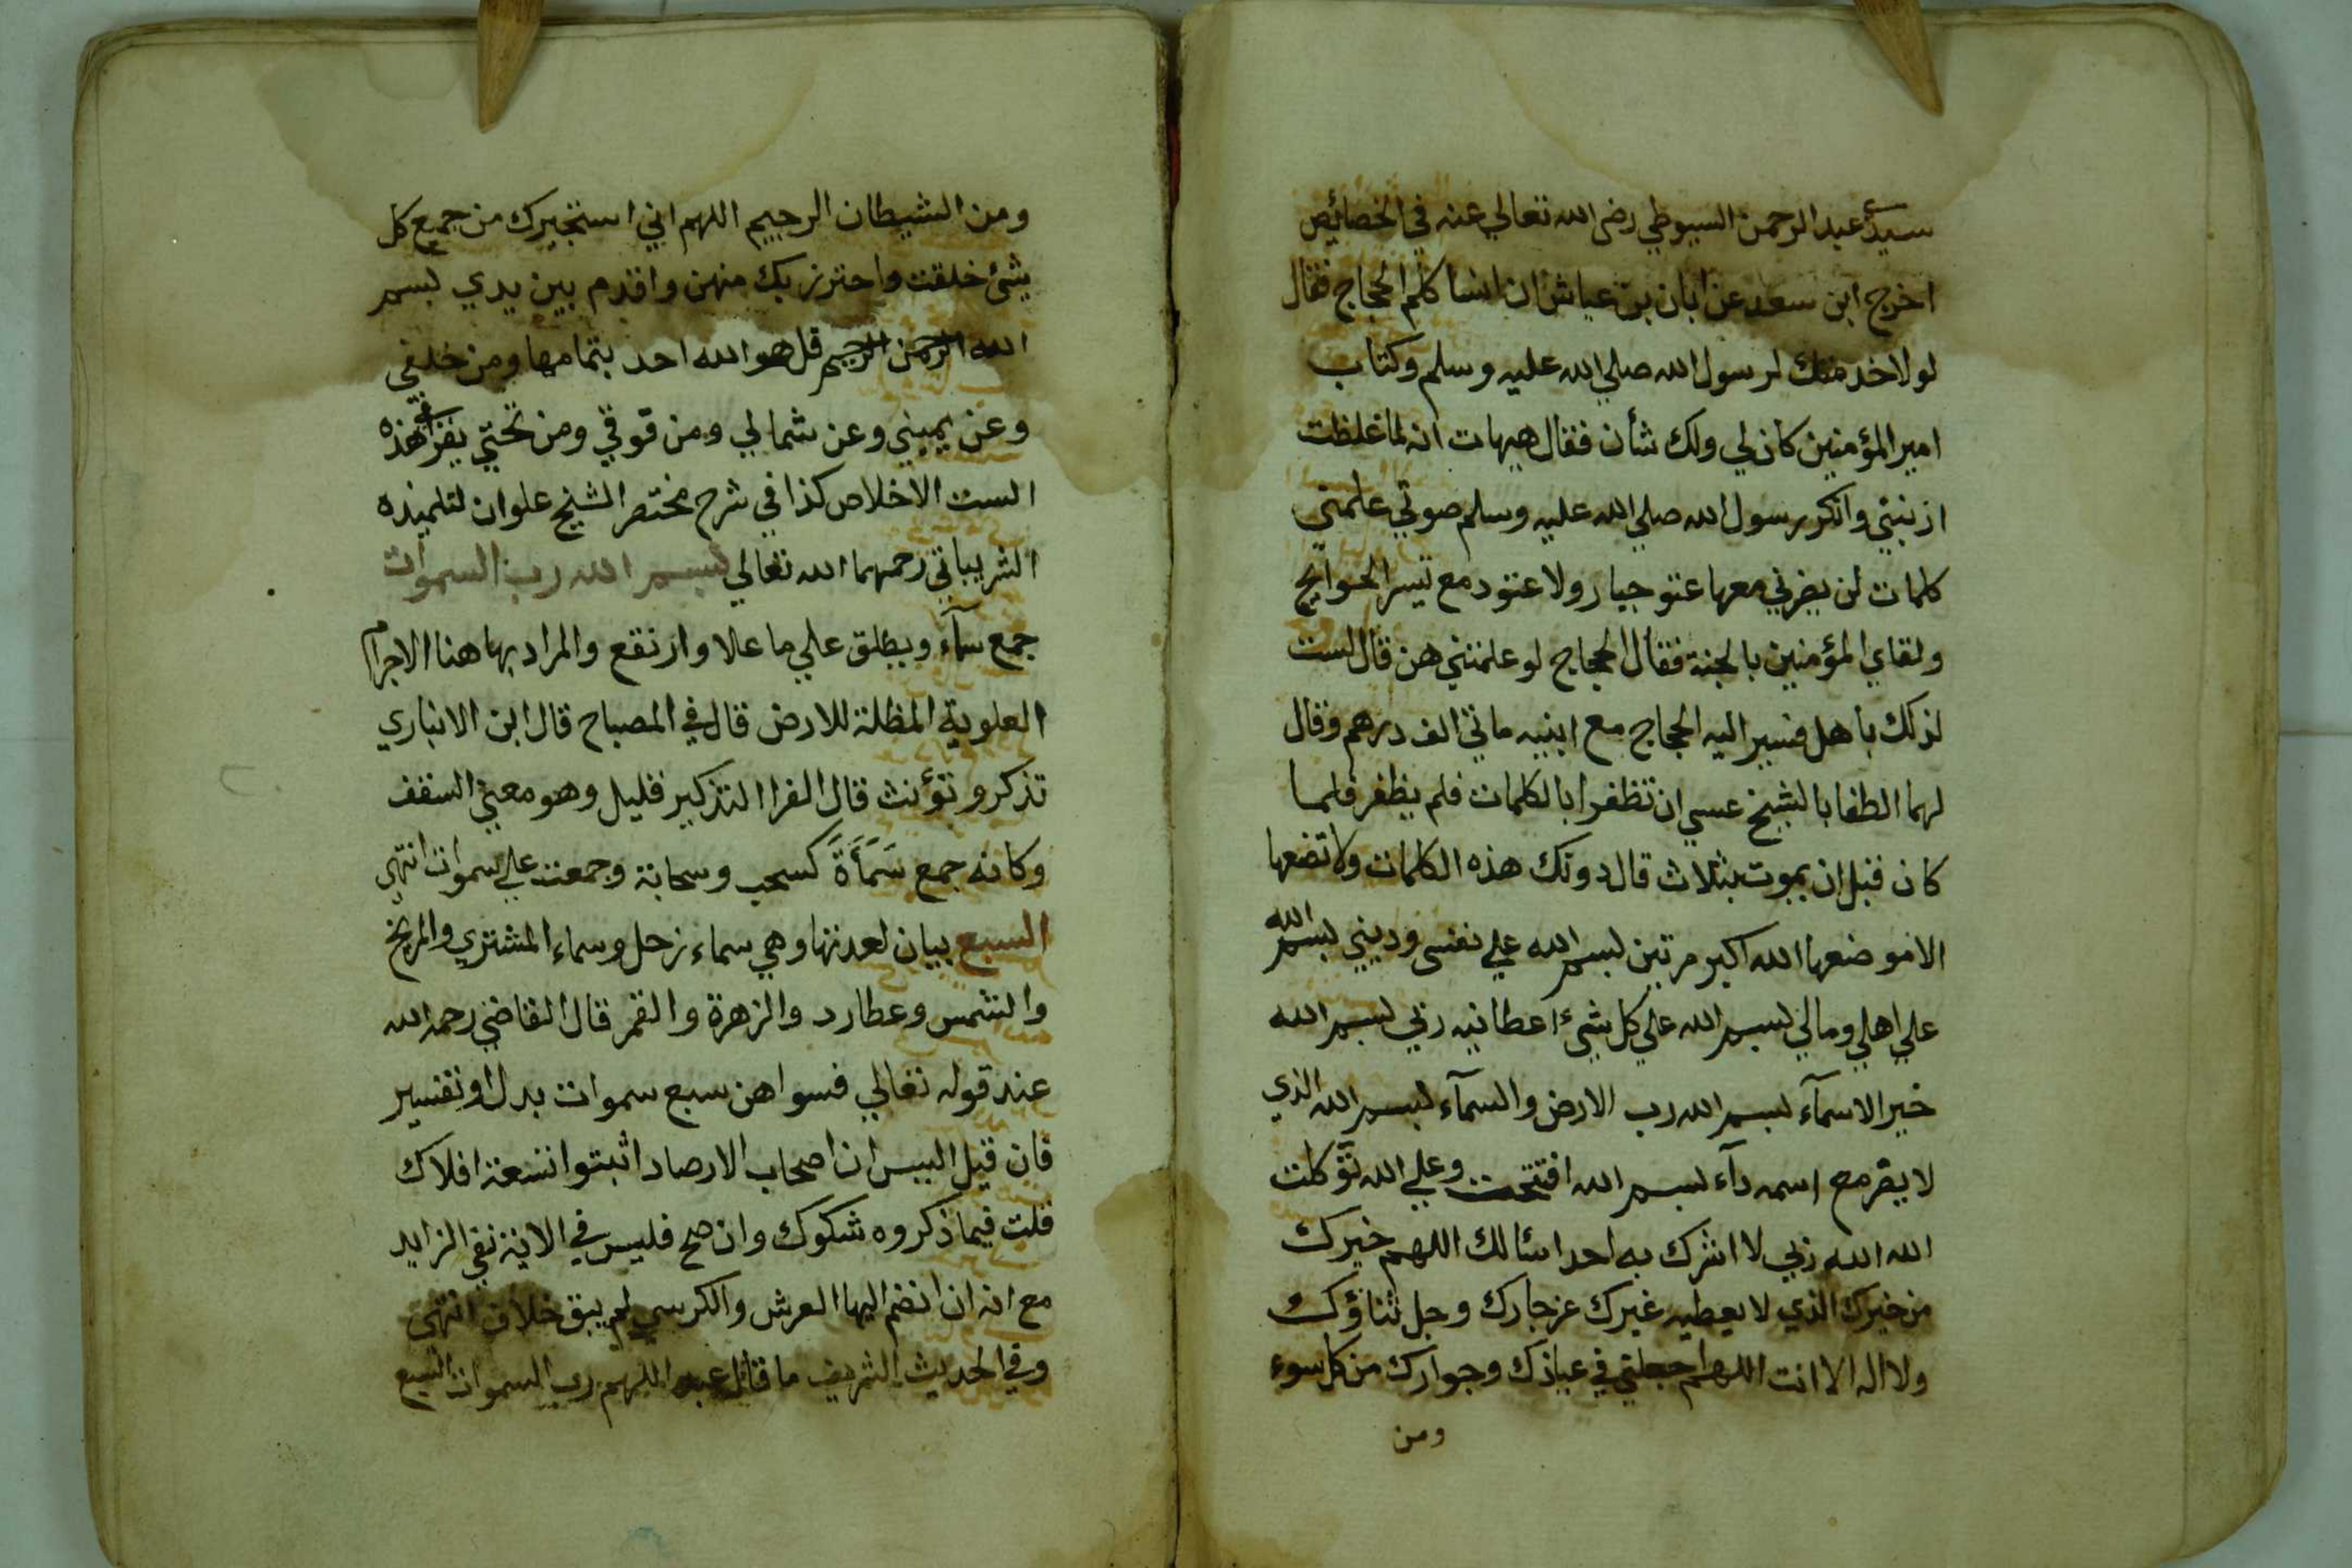 سيدي عبد الرحمن السيوطي رضي الله تعالي عنه في الخصائص
اخرج ابن سعد عن ابان بن عياش ان انسا كلم الحجاج فقال
لولا خدمتك لرسول الله صلي الله عليه وسلم وكتاب
امير المؤمنين كان لي ولك شأن فقال هيهات انه لما غلظت
ارنبتي وانكر رسول الله صلي الله عليه وسلم صوتي علمني
كلمات لن يضرني معها عتو جبار ولا عنود مع تيسر الحوايج
ولقاي المؤمنين بالجنة فقال الحجاج لو علمتني هن قال لست
لذلك باهل فسير اليه الحجاج مع ابنيه مائتي الف درهم وقال
لهما الطفا بالشيخ عسي ان تظفرا بالكلمات فلم يظفر فلما
كان قبل ان يموت بثلاث قال دونك هذه الكلمات ولا تضعها
الا موضعها الله اكبر مرتين بسم الله علي نفسي وديني بسم الله
علي اهلي ومالي بسم الله علي كل شيء اعطانيه ربي بسم الله
خير الاسمآء بسم الله رب الارض والسمآء بسم الله الذي
لا يضر مع اسمه دآء بسم الله افتتحت وعلي الله توكلت
الله الله ربي لا اشرك به احدا اسئالك اللهم خيرك
من خيرك الذي لا يعطيه غيرك عز جارك وجل ثناؤك
ولا اله الا انت اللهم اجعلني في عياذك وجوارك من كل سوء
ومن
ومن الشيطان الرجيم اللهم اني استجيرك من جميع كل
شئ خلقت واحترز بك منهن واقدم بين يدي بسم
الله الرحمن الرحيم قل هو الله احد بتمامها ومن خلفي
وعن يميني وعن شمالي ومن فوقي ومن تحتي يقرأ هذه
الست الاخلاص كذا في شرح مختصر الشيخ علوان لتلميذه
الشرباتي رحمهما الله تعالي بسم الله رب السموات
جمع سمآء ويطلق علي ما علا وارتفع والمراد بها هنا الاجرام
العلوية المظلة للارض قال في المصباح قال ابن الانباري
تذكر وتؤنث قال الفرا التذكير قليل وهو معني السقف
وكانه جمع سَمَأَةً كسحب وسحابة وجمعت علي سموات انتهي
السبع بيان لعدتها وهي سماء زحل وسماء المشتري والمريخ
والشمس وعطارد والزهرة والقمر قال القاضي رحمه الله
عند قوله تعالي فسواهن سبع سموات بدل او تفسير
فان قيل اليس ان اصحاب الارصاد اثبتوا تسعة افلاك
قلت فيما ذكروه شكوك وان صح فليس في الاية نفي الزايد
مع انه ان انضم اليها العرش والكرسي لم يبق خلاف انتهي
وفي الحديث الشريف ما قال عبد اللهم رب السموات السبع